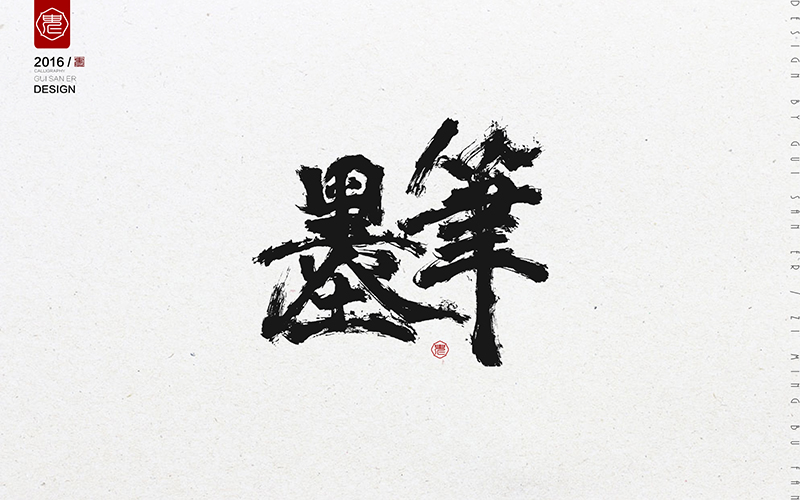 2016 /
CALLIGRAPHY
GUI SAN ER
DESIGN
筆墨
DESIGN BY GUI SAN ER / ZI MING.BU FAN